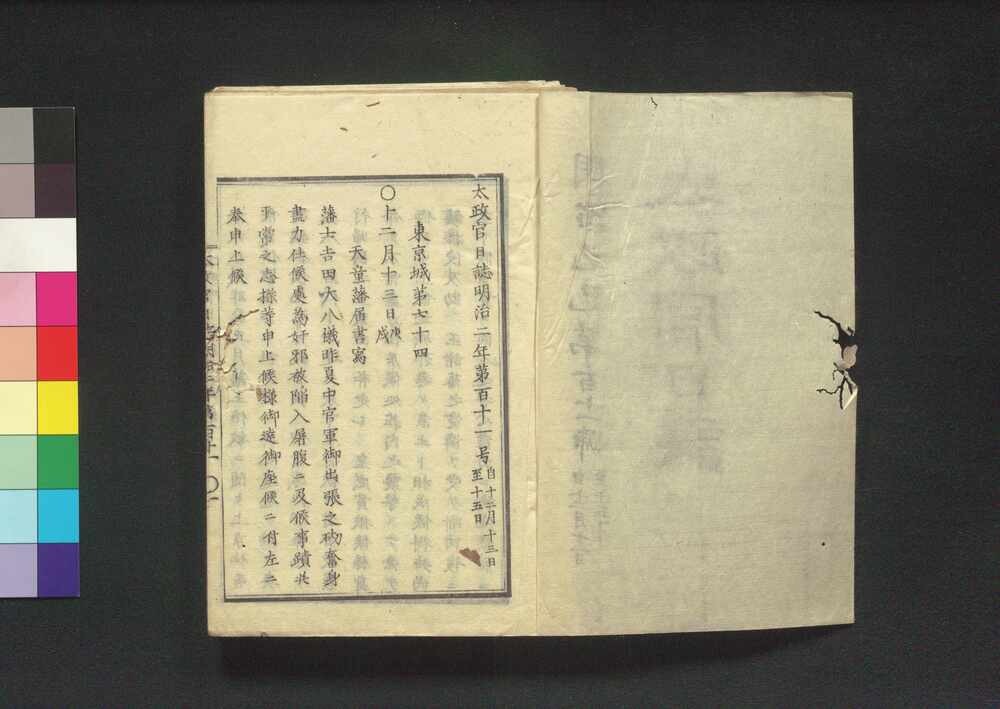 太政官日誌明治二年第百十一号 自十二月十三日 至十五日
東京城第七十四
〇十二月十三日 庚戌
天童藩届書寫
藩士吉田大八儀昨夏中官軍御出張之砌奮身
盡力仕候處為奸邪被陥入屠腹ニ及候事蹟共
平常之志操等申上候様御達御座候ニ付左ニ
奉申上候